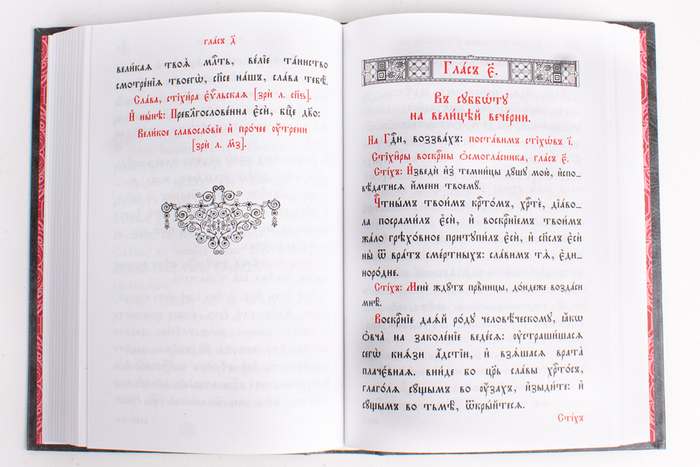 гла́съ д҃
вели́каѧ твоѧ̀ мл҃ть, ве́лїе та́инство
смотре́нїѧ твоегѡ̀, сп҃се на́шъ, сла́ва тебѣ̀.
Сла́ва, стїхи́ра є҆ѵⷢ҇льскаѧ
И҆ ны́нѣ: Пребл҃гослове́нна є҆сѝ, бц҃е дв҃о:
Вели́кое славосло́вїе и҆ про́чее ᲂу҆́трени
[зрѝ л. м҃з].
Гла́съ є҃.
Въ сꙋббѡ́тꙋ
на вели́цѣй вече́рни.
На Гдⷭ҇и, воззва́хъ: поста́вимъ стїхѡ́въ і҃.
Стїхи̑ры воскрⷭ҇ны ѻ҆смогла́сника, гла́съ є҃.
Сті́хъ: И҆зведѝ и҆з̾ темни́цы дꙋ́шꙋ мою̀, и҆спо-
вѣ́датисѧ и҆́мени твоемꙋ̀.
Чⷭ҇тны́мъ твои́мъ крⷭ҇то́мъ, хрⷭ҇тѐ, дїа́во-
ла посрами́лъ є҆сѝ, и҆ воскрⷭ҇нїемъ твои́мъ
жа́ло грѣхо́вное притꙋпи́лъ є҆сѝ, и҆ сп҃слъ є҆сѝ
ны̀ ѿ вра́тъ сме́ртныхъ: сла́вимъ тѧ̀, є҆ди-
норо́дне.
Сті́хъ: Менѐ ждꙋ́тъ првⷣницы, до́ндеже возда́си
мнѣ̀.
Воскрⷭ҇нїе даѧ́й ро́дꙋ человѣ́ческомꙋ, ꙗ҆́кѡ
ѻ҆вча̀ на заколе́нїе веде́сѧ: ᲂу҆страши́шасѧ
сегѡ̀ кнѧ̑зи а҆́дстїи, и҆ взѧ́шасѧ врата̀
плаче́внаѧ. вни́де бо цр҃ь сла́вы хрⷭ҇то́съ,
глаго́лѧ сꙋ́щымъ во ᲂу҆́захъ, и҆зыди́те: и҆
сꙋ́щымъ во тьмѣ̀, ѿкры́йтесѧ.
Сті́хъ